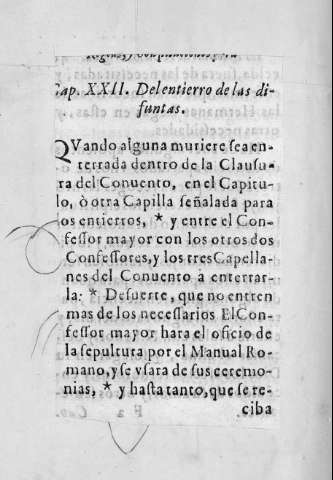 Cap. XXII. Del entierro de las di-
funtas.
QVando alguna muriere sea en-
terrada dentro de la Clausu-
ra del Conuento, en el Capitu-
lo, ò otra Capilla señalada para
los entierros, * y entre el Con-
fessor mayor con los otros dos
Confessores, y los tres Capella-
nes del Conuento à enterrar-
la: * Desuerte, que no entren
mas de los necessarios El Con-
fessor mayor hara el oficio de
la sepultura por el Manual Ro-
mano, y se vsara de sus ceremo-
nias, * y hasta tanto, que se re-
ciba